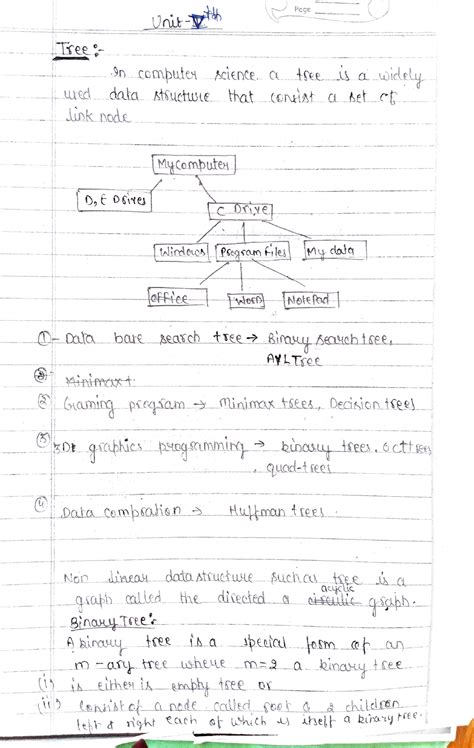 Page
Unit-Vth
Tree :-
In computer science a tree is a widely
used data structure that consist a set of
link node
Mycomputer
D, E Drives
C Drive
Windows
Program Files
My data
office
Word
NotePad
① - Data base search tree → Binary search tree,
AVL Tree
② Minimax t
② Gaming program → Minimax trees, Decision trees
③ 3D graphics programming → binary trees, octtrees
, quad-trees
④ Data compration → Huffman trees
Non linear data structure such as tree is a
acyclic
graph called the directed a graph.
Binary Tree :-
A binary tree is a special form of an
m-ary tree where m=2 a binary tree
(i) is either is empty tree or
(ii) consist of a node called root & 2 children
left & right each of which is itself a binary tree.